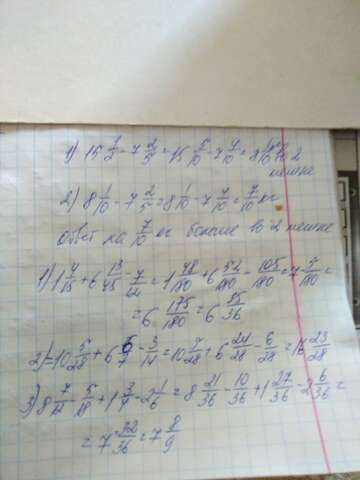 1) 15 1/2 - 7 2/5 = 15 5/10 - 7 4/10 = 8 1/10 во 2
мешке
2) 8 1/10 - 7 2/5 = 8 1/10 - 7 4/10 = 7/10 кг
ответ на 7/10 кг больше во 2 мешке
1) 1 4/15 + 6 13/45 - 7/12 = 1 48/180 + 6 52/180 - 105/180 = 7
= 6 175/180 = 6 35/36
2) = 10 5/28 + 6 6/7 - 3/14 = 10 + 6 24/28 - 6/28 = 16 23/28
3) 8 7/12 - 5/18 + 1 3/4 - 2 1/6 = 8 21/36 - 10/36 + 1 27/36 - 2 6/36 =
= 7 32/36 = 7 8/9